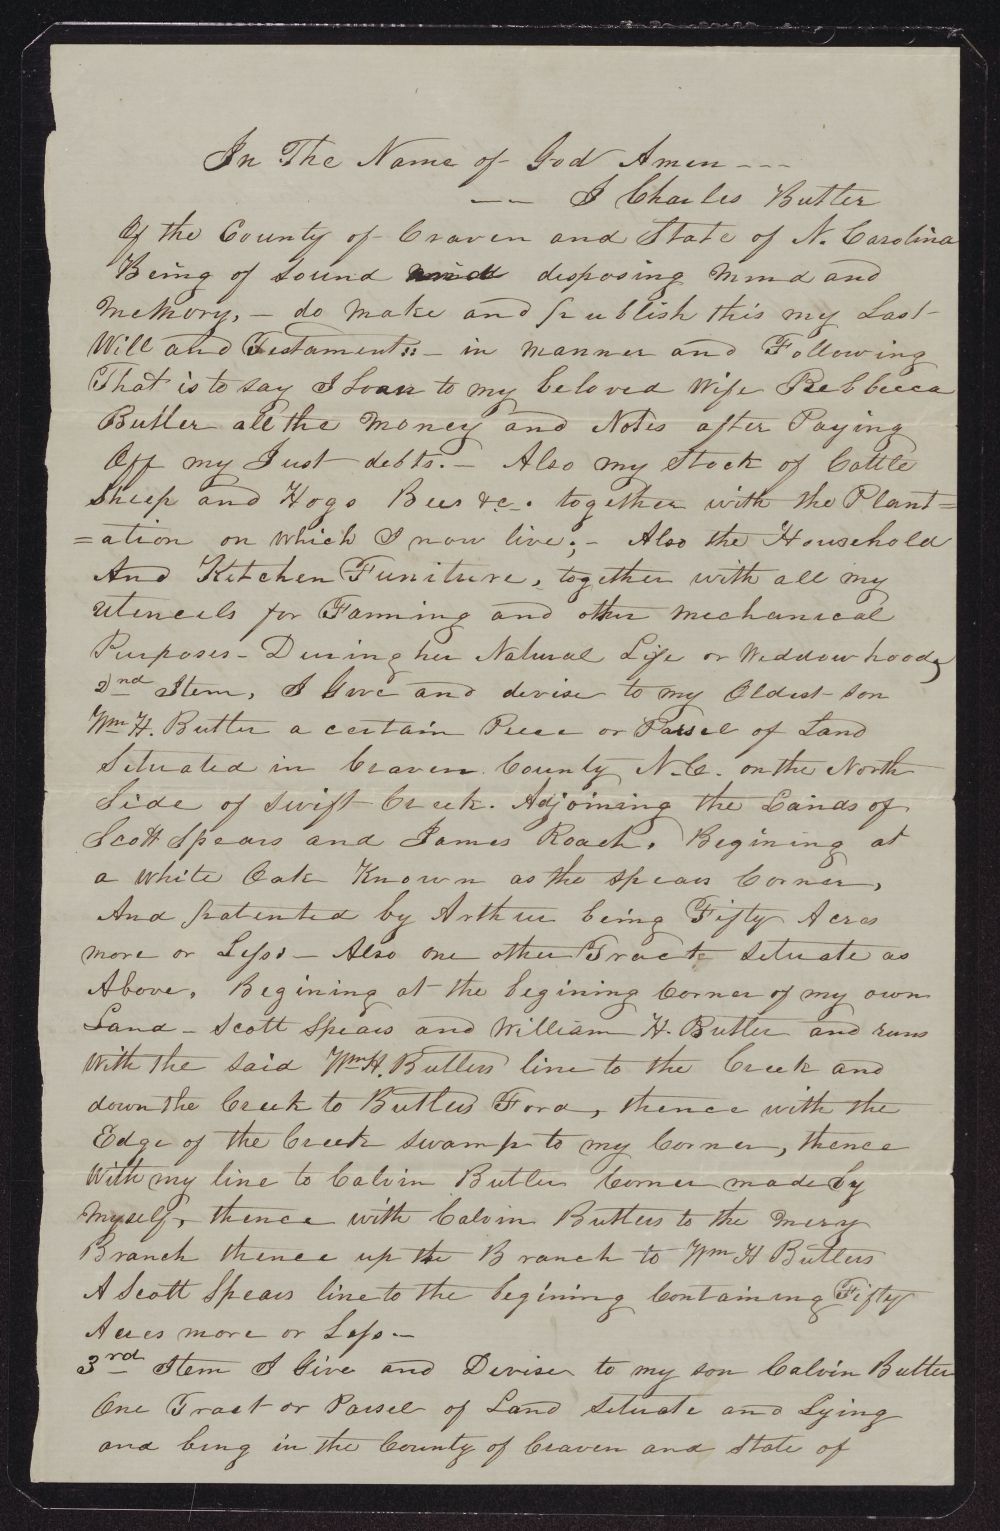 In The Name of God Amen - - -
- - I Charles Butler
Of the County of Craven and State of N. Carolina
Being of sound disposing Mind and
Memory, - do make and publish this my Last
Will and Testament:: - in manner and Following
That is to say I Loan to my beloved Wife Rebbecca
Butler all the Money and Notes after Paying
Off my Just debts. - Also my Stock of Cattle
Sheep and Hogs Bees &c. together with the Plant=
=ation on which I now live; - Also the Household
And Kitchen Funiture, together with all my
utencels for Farming and other mechanical
Purposes - During her Natural Life or Weddowhood,
2nd Item, I Give and devise to my Oldest son
Wm H. Butler a certain Piece or Parsel of Land
Situated in Craven County N.C. on the North
Side of Swift Creek. Adjoining the Lands of
Scott Spears and James Roach. Begining at
a White Oak Known as the Spears Corner,
And patented by Arthur being Fifty Acres
more or Less - Also one other Tract situate as
Above. Begining at the begining Corner of my own
Land - Scott Spears and William H. Butler and runs
With the said Wm H. Butlers line to the Creek and
down the Creek to Butlers Ford, thence with the
Edge of the Creek swamp to my Corner, thence
With my line to Calvin Butler Corner made by
Myself, thence with Calvin Butlers to the
Branch thence up the Branch to Wm H Butlers
A Scott Spears line to the begining Containing Fifty
Acres more or Less. -
3rd Item I Give and Devise to my son Calvin Butler
One Tract or Parsel of Land situate and Lying
and being in the County of Craven and State of